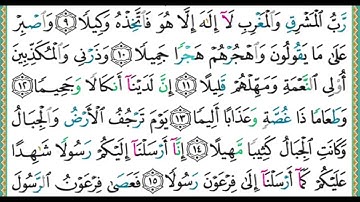 رَّبُّ ٱلْمَشْرِقِ وَٱلْمَغْرِبِ لَآ إِلَٰهَ إِلَّا هُوَ فَٱتَّخِذْهُ وَكِيلًا ٩ وَٱصْبِرْ
عَلَىٰ مَا يَقُولُونَ وَٱهْجُرْهُمْ هَجْرًا جَمِيلًا ١٠ وَذَرْنِى وَٱلْمُكَذِّبِينَ
أُو۟لِى ٱلنَّعْمَةِ وَمَهِّلْهُمْ قَلِيلًا ١١ إِنَّ لَدَيْنَآ أَنكَالًا وَجَحِيمًا ١٢
وَطَعَامًا ذَا غُصَّةٍ وَعَذَابًا أَلِيمًا ١٣ يَوْمَ تَرْجُفُ ٱلْأَرْضُ وَٱلْجِبَالُ
وَكَانَتِ ٱلْجِبَالُ كَثِيبًا مَّهِيلًا ١٤ إِنَّآ أَرْسَلْنَآ إِلَيْكُمْ رَسُولًا شَٰهِدًا
عَلَيْكُمْ كَمَآ أَرْسَلْنَآ إِلَىٰ فِرْعَوْنَ رَسُولًا ١٥ فَعَصَىٰ فِرْعَوْنُ ٱلرَّسُولَ